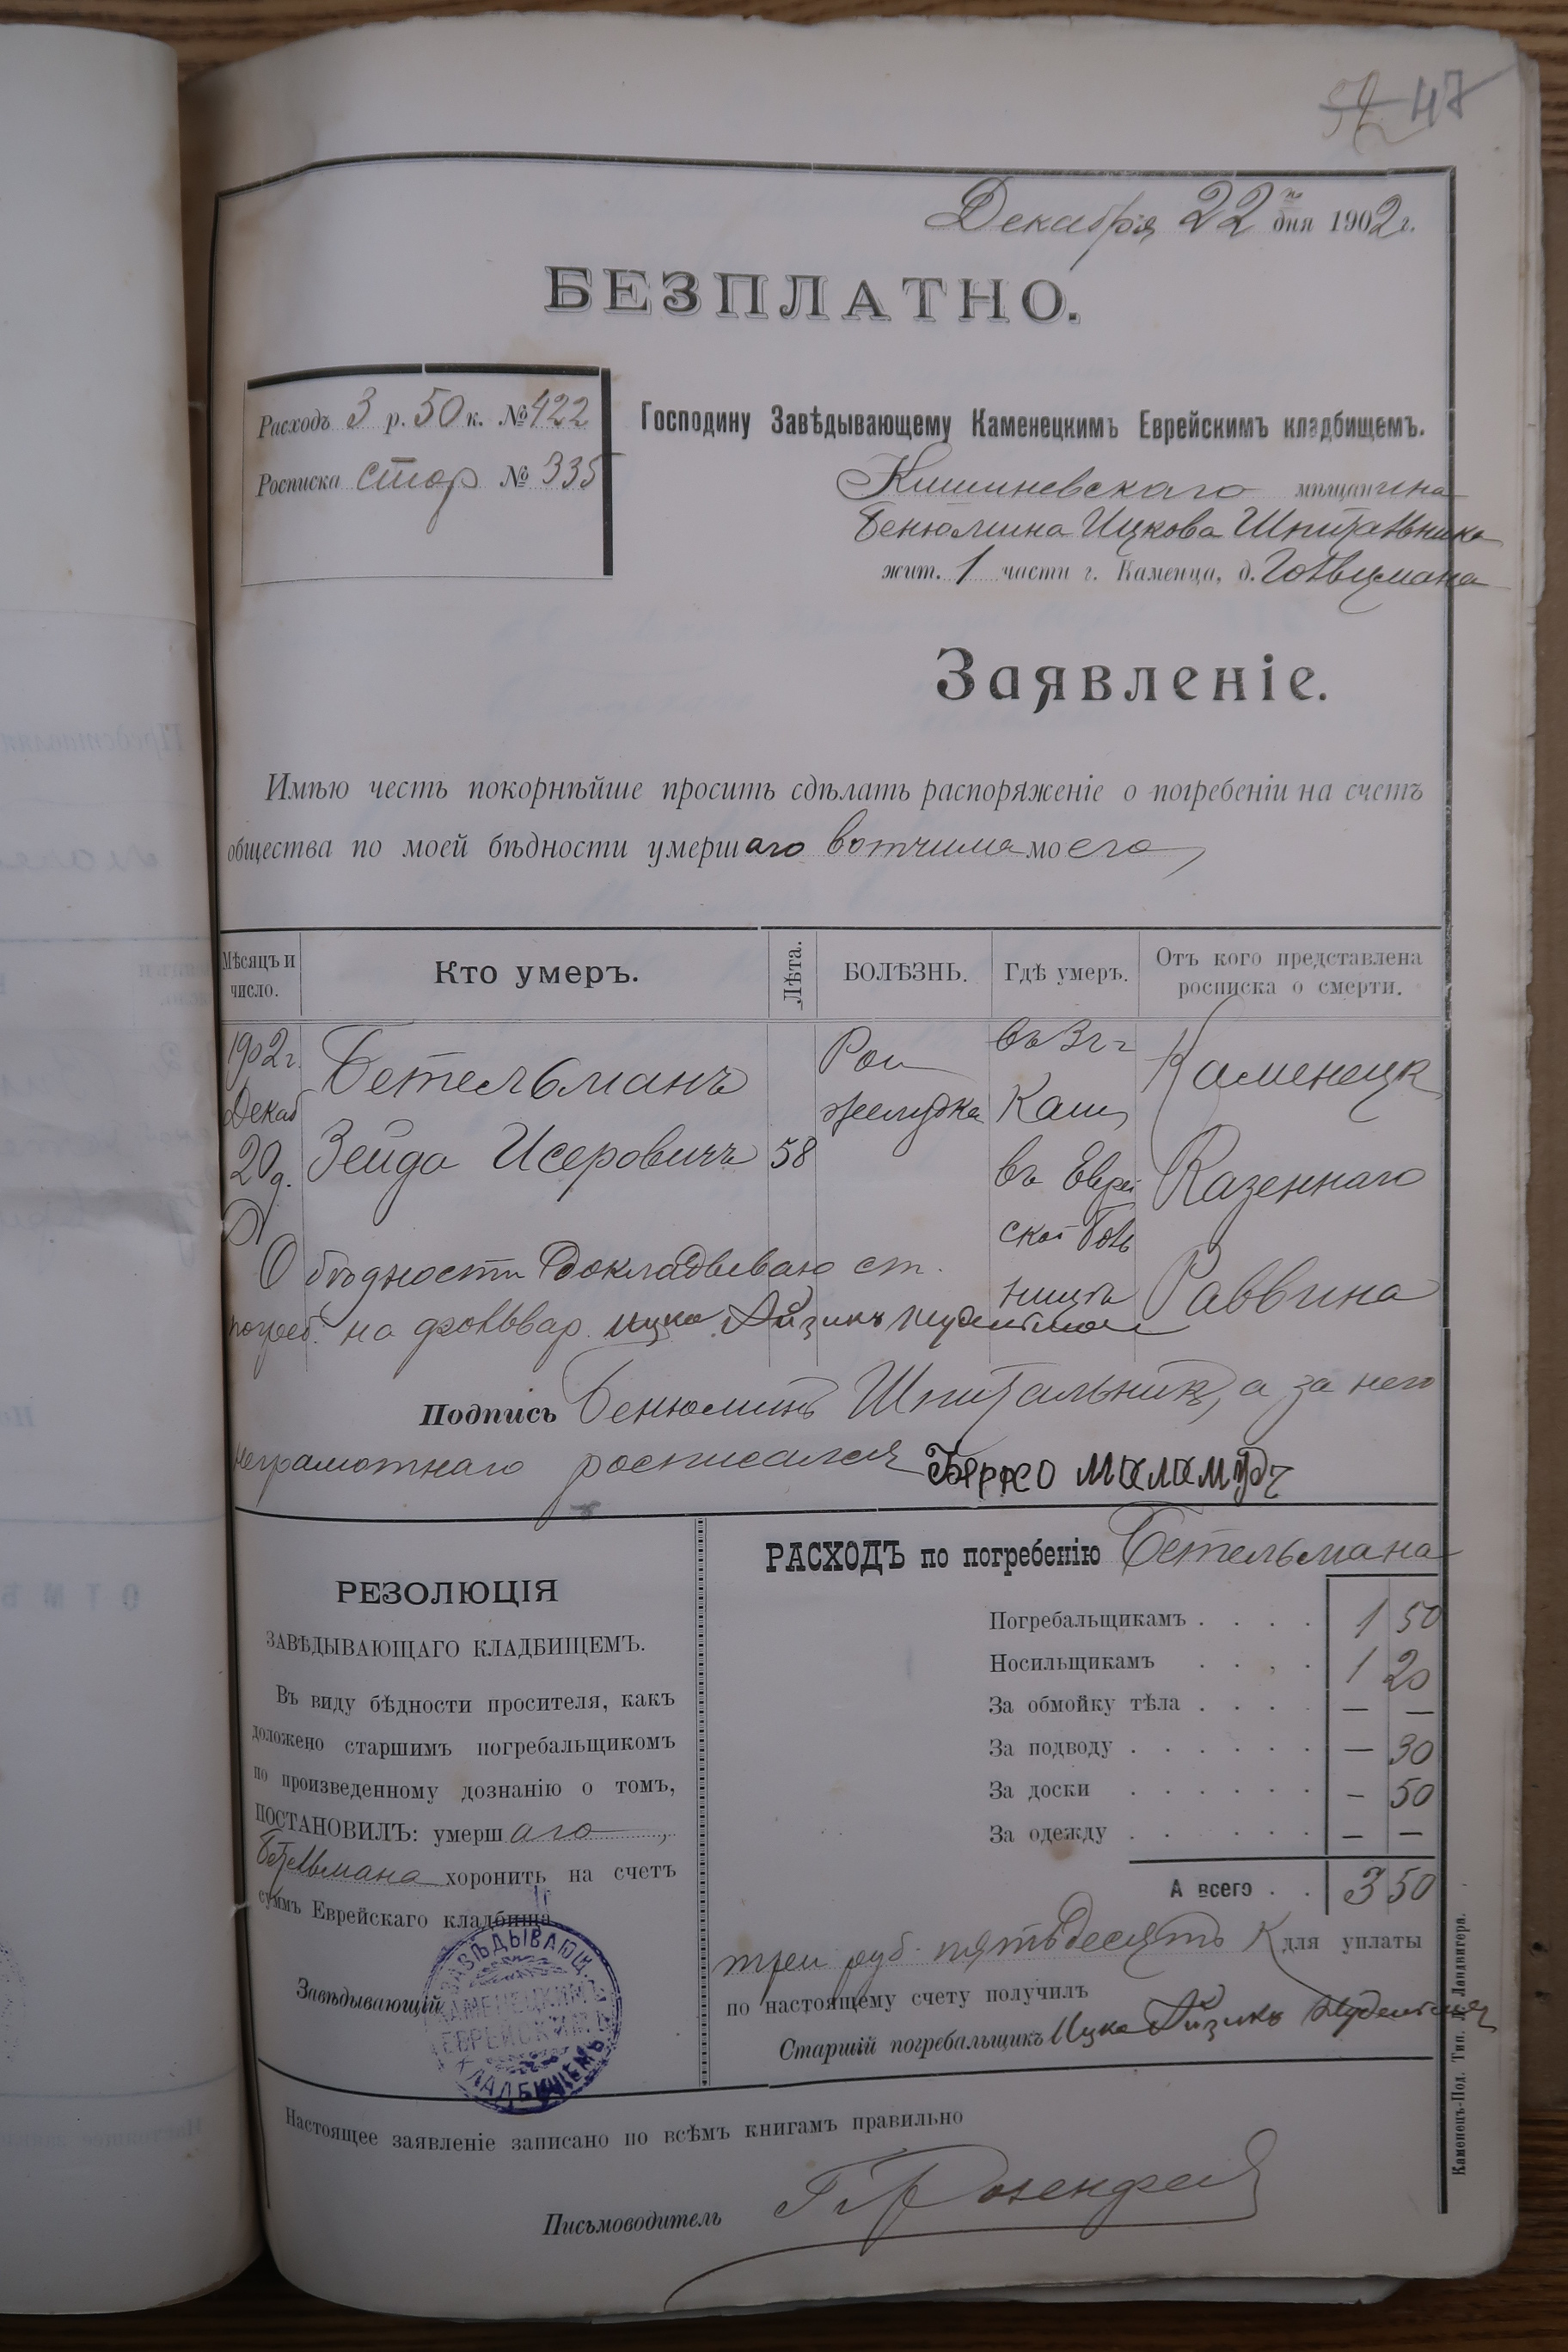 47
Декабря 22 го дня 1902 г.
БЕЗПЛАТНО.
Расходъ 3 р. 50 к. № 422
Росписка стор № 335
Господину Завѣдывающему Каменецкимъ Еврейскимъ кладбищемъ.
Кишиневскаго мѣщанина
Бенюмина Ицкова Шпитальника
жит. 1 части г. Каменца, д. Гольцмана
Заявленіе.
Имѣю честь покорнѣйше просить сдѣлать распоряженіе о погребеніи на счетъ
общества по моей бѣдности умершаго вотчима моего,
Мѣсяцъ и число.
Кто умеръ.
Лѣта.
БОЛѢЗНЬ.
Гдѣ умеръ.
Отъ кого представлена росписка о смерти.
1902 г.
Декаб
20 д.
Бетельманъ
Зейда Исеровичъ
58
Рак
желудка
Кам
въ Еврей
ской боль
ницѣ
Каменецк
Казеннаго
Раввина
О бѣдности докладываю ст.
погреб. на фольвар. Ицко Айзикъ
Подпись Бенюминъ Шпитальникъ, а за него
неграмотнаго росписался Берко Маламудъ
РЕЗОЛЮЦІЯ
ЗАВѢДЫВАЮЩАГО КЛАДБИЩЕМЪ.
Въ виду бѣдности просителя, какъ
доложено старшимъ погребальщикомъ
по произведенному дознанію о томъ,
ПОСТАНОВИЛЪ: умершаго
Бетельмана хоронить на счетъ
суммъ Еврейскаго кладбища
Завѣдывающій
ЗАВѢДЫВАЮЩ.
КАМЕНЕЦКИМЪ
ЕВРЕЙСКИМЪ
КЛАДБИЩЕМЪ
РАСХОДЪ по погребенію Бетельмана
Погребальщикамъ . . . . 1 50
Носильщикамъ . . , . 1 20
За обмойку тѣла . . . . — —
За подводу . . . . . . — 30
За доски . . . . . . — 50
За одежду . . . . . . — —
А всего . . 3 50
три руб. пятьдесятъ К для уплаты
по настоящему счету получилъ
Старшій погребальщикъ Ицко Айзикъ
Настоящее заявленіе записано по всѣмъ книгамъ правильно
Письмоводитель Розенфельд
Каменецъ-Под. Тип. Ландвигера.